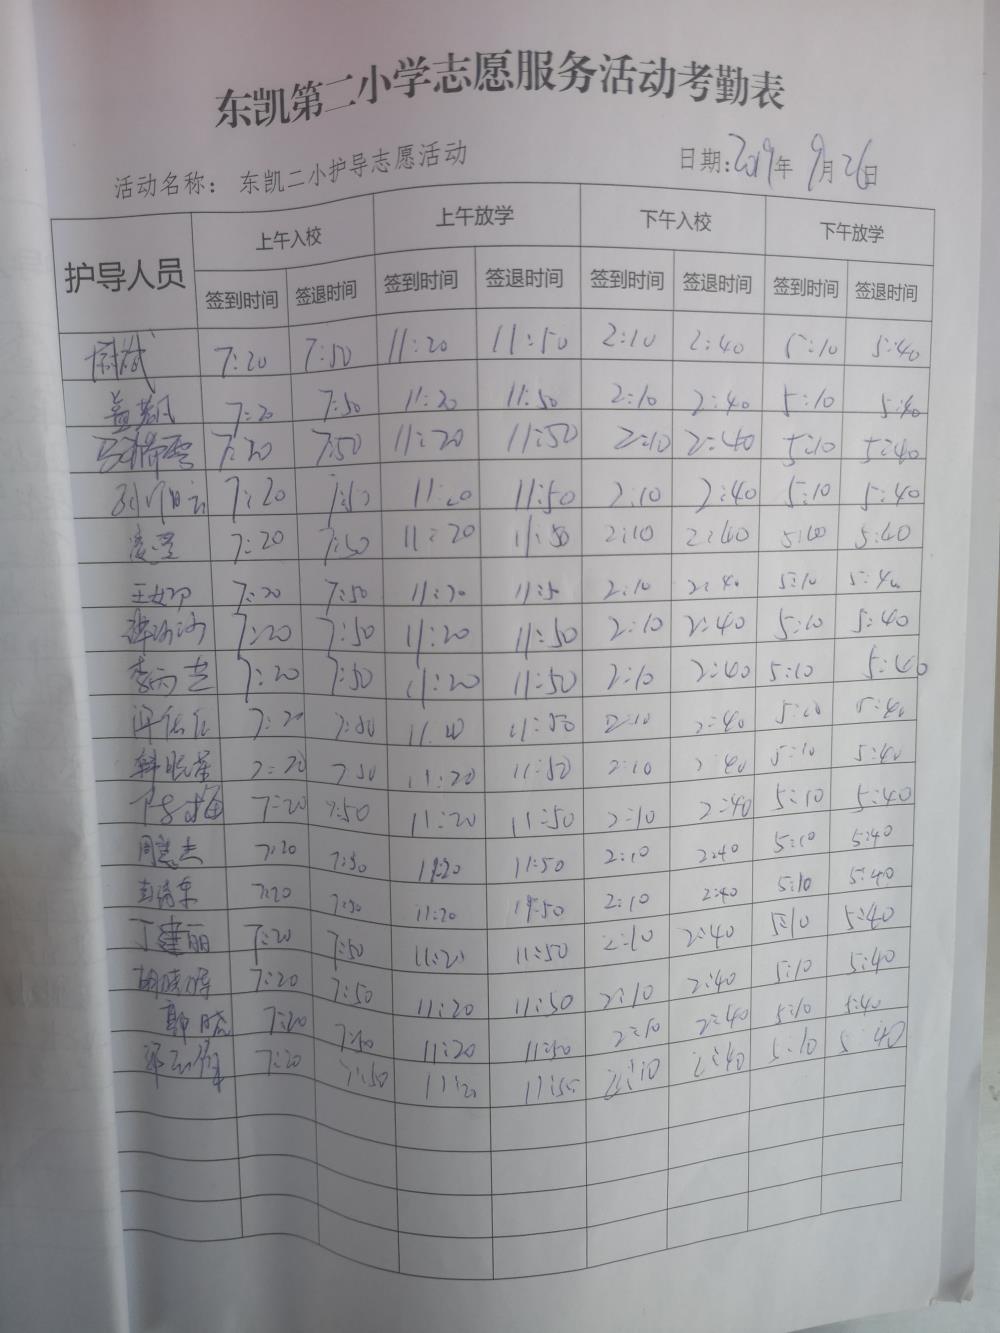 东凯第二小学志愿服务活动考勤表
活动名称： 东凯二小护导志愿活动 日期:2019年 9月26日
护导人员 上午入校 上午放学 下午入校 下午放学
签到时间 签退时间 签到时间 签退时间 签到时间 签退时间 签到时间 签退时间
7:20 7:50 11:20 11:50 2:10 2:40 5:10 5:40
7:20 7:50 11:20 11:50 2:10 2:40 5:10 5:40
7:20 7:50 11:20 11:50 2:10 2:40 5:10 5:40
7:20 7:50 11:20 11:50 2:10 2:40 5:10 5:40
7:20 7:50 11:20 11:50 2:10 2:40 5:40
7:20 7:50 11:20 11:50 2:10 2:40 5:10 5:40
7:20 7:50 11:20 11:50 2:10 2:40 5:10 5:40
7:20 7:50 11:20 11:50 2:10 2:40 5:10 5:40
7:20 7:50 11:50 2:10 2:40 5:10 5:40
韩晓荣 7:20 7:50 11:20 11:50 2:10 2:40 5:10 5:40
7:20 7:50 11:20 11:50 2:10 2:40 5:10 5:40
周慧杰 7:20 7:50 11:20 11:50 2:10 2:40 5:10 5:40
7:20 7:50 11:20 11:50 2:10 2:40 5:10 5:40
丁建丽 7:20 7:50 11:20 11:50 2:10 2:40 5:10 5:40
胡晓辉 7:20 7:50 11:20 11:50 2:10 2:40 5:10 5:40
郭晓 7:20 7:50 11:20 11:50 2:10 2:40 5:10 5:40
7:20 7:50 11:20 11:50 2:10 2:40 5:10 5:40